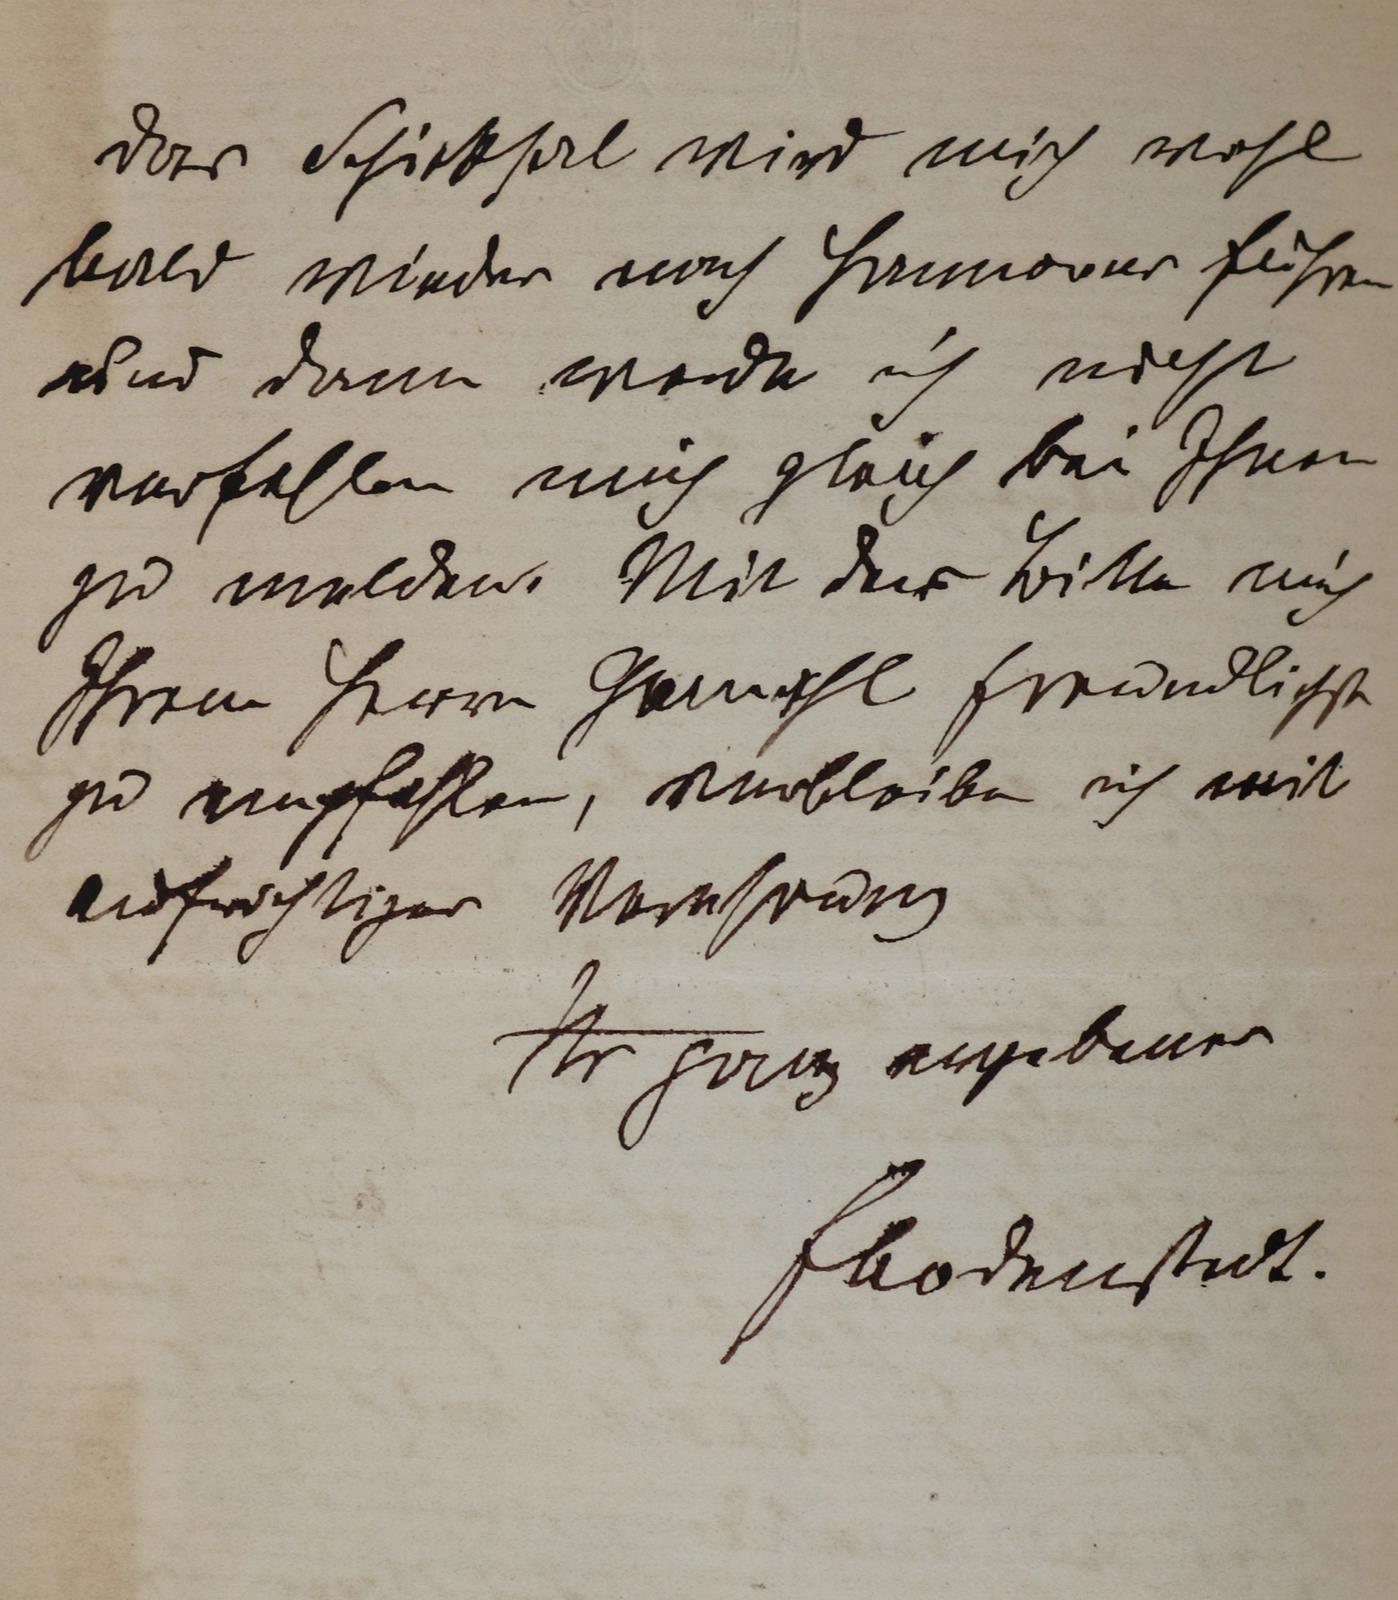 das Schicksal wird mich wohl
bald wieder nach Hannover führen
und dann werde ich nicht
verfehlen mich gleich bei Ihnen
zu melden. Mit der Bitte mich
Ihrem Herrn Gemahl freundlichst
zu empfehlen, verbleibe ich mit
aufrichtiger Verehrung
Ihr ganz ergebener
FBodenstedt.